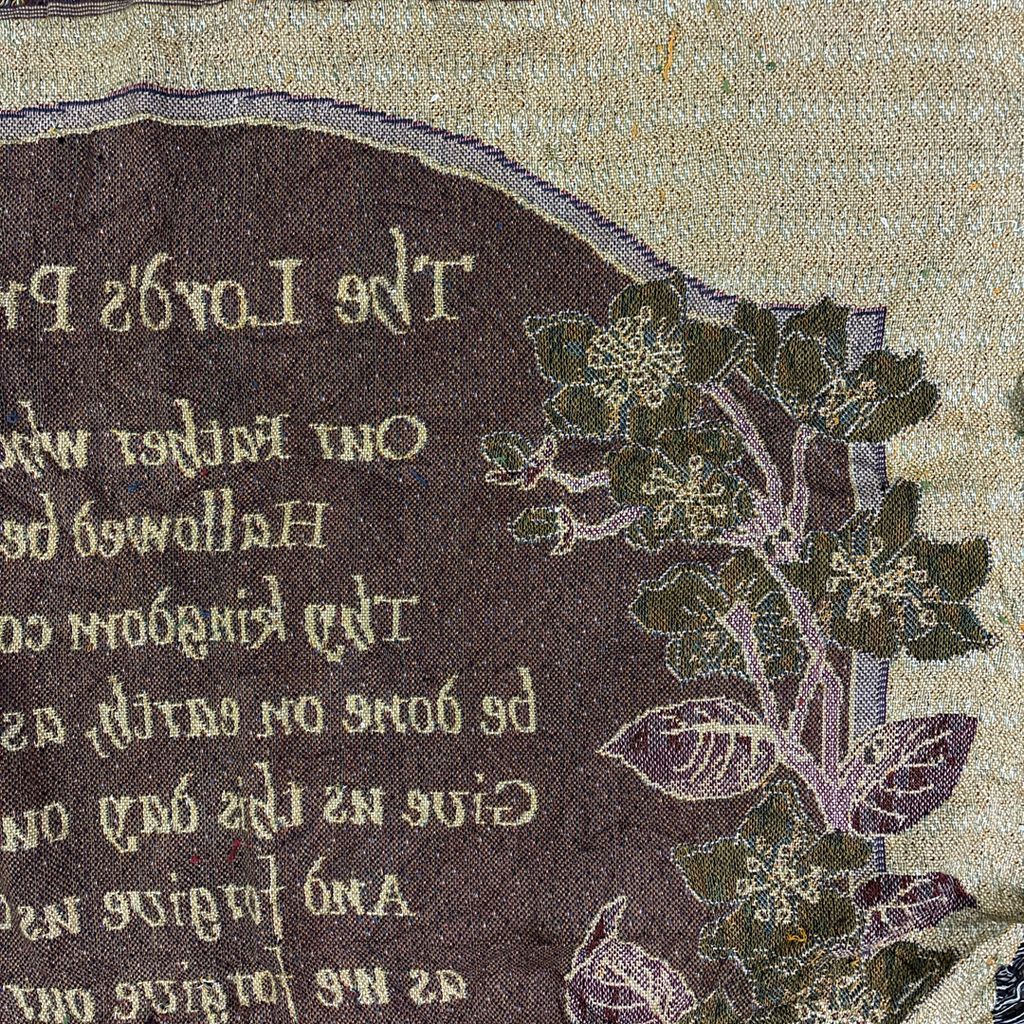 The Lord's Pr
Our Father who
Hallowed be
Thy kingdom co
be done on earth, as
Give us this day ou
And forgive us
as we forgive our